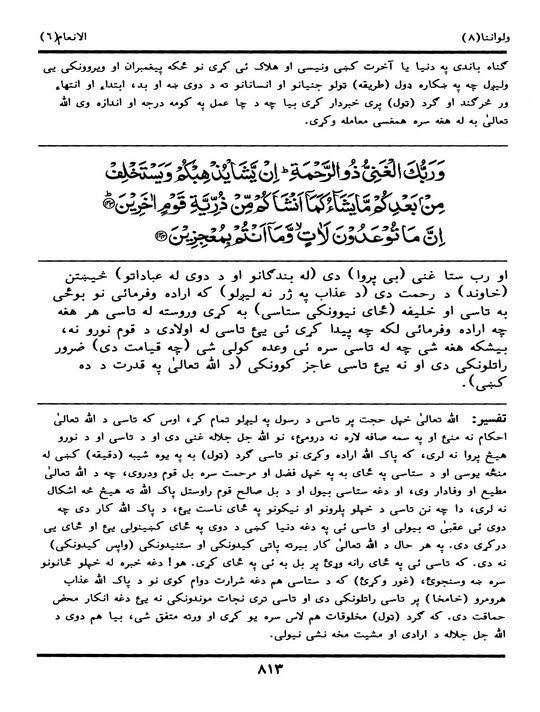 ولواننا(۸)
الانعام(٦)
ګناه باندی په دنیا یا آخرت کښی ونیسی او هلاک ئی کړی نو ځکه پیغمبران او ویروونکی یی
ولیږل چه په ښکاره ډول (طریقه) ټولو جنیانو او انسانانو ته د دوی ښه او بد، ابتداء او انتهاء
ور څرګند او ګرد (ټول) پری خبردار کړی بیا چه د چا عمل په کومه درجه او اندازه وی الله
تعالیٰ به له هغه سره همغسی معامله وکړی.
وَرَبُّكَ الْغَنِيُّ ذُو الرَّحْمَةِ ۚ اِنْ يَّشَاْ يُذْهِبْكُمْ وَيَسْتَخْلِفْ
مِنْ بَعْدِكُمْ مَّا يَشَآءُ كَمَآ اَنْشَاَكُمْ مِّنْ ذُرِّيَّةِ قَوْمٍ اٰخَرِيْنَ
اِنَّ مَا تُوْعَدُوْنَ لَاٰتٍ ۙ وَّمَآ اَنْتُمْ بِمُعْجِزِيْنَ
او رب ستا غنی (بی پروا) دی (له بندګانو او د دوی له عباداتو) څیښتن
(خاوند) د رحمت دی (د عذاب په ژر نه لیږلو) که اراده وفرمائی نو بوځی
به تاسی او خلیفه (ځای نیوونکی ستاسی) به کړی وروسته له تاسی هر هغه
چه اراده وفرمائی لکه چه پیدا کړی ئی یئ تاسی له اولادی د قوم نورو نه،
بیشکه هغه شی چه له تاسی سره ئی وعده کولی شی (چه قیامت دی) ضرور
راتلونکی دی او نه یئ تاسی عاجز کوونکی (د الله تعالیٰ په قدرت د ده
کښی).
تفسیر: الله تعالیٰ خپل حجت پر تاسی د رسول په لیږلو تمام کړ، اوس که تاسی د الله تعالیٰ
احکام نه منئ او په سمه صافه لاره نه درومئ، نو الله جل جلاله غنی دی او د تاسی او د نورو
هیڅ پروا نه لری، که پاک الله اراده وکړی نو تاسی ګرد (ټول) به په یوه شیبه (دقیقه) کښی له
منځه یوسی او د ستاسی په ځای به په خپل فضل او مرحمت سره بل قوم ودروی، چه د الله تعالیٰ
مطیع او وفادار وی، او دغه ستاسی بیول او د بل صالح قوم راوستل پاک الله ته هیڅ څه اشکال
نه لری، دا چه نن تاسی د خپلو پلرونو او نیکونو په ځای ناست یئ، د پاک الله کار دی چه
دوی ئی عقبیٰ ته بیولی او تاسی ئی په دغه دنیا کښی د دوی په ځای کښینولی یئ او ځای یی
درکړی دی. په هر حال د الله تعالیٰ کار بیرته پاتی کیدونکی او ستنیدونکی (واپس کیدونکی)
نه دی. که تاسی ئی په ځای رانه وړئ پر بل به ئی په ځای کړی. هو! دغه خبره له خپلو ځانونو
سره ښه وسنجوئ، (غور وکړئ) که د ستاسی هم دغه شرارت دوام کوی نو د پاک الله عذاب
هرومرو (خامخا) پر تاسی راتلونکی دی او تاسی تری نجات موندونکی نه یئ دغه انکار محض
حماقت دی. که ګرد (ټول) مخلوقات هم لاس سره یو کړی او ورته متفق شی، بیا هم دوی د الله
جل جلاله د ارادی او مشیت مخه نشی نیولی.
۸۱۳